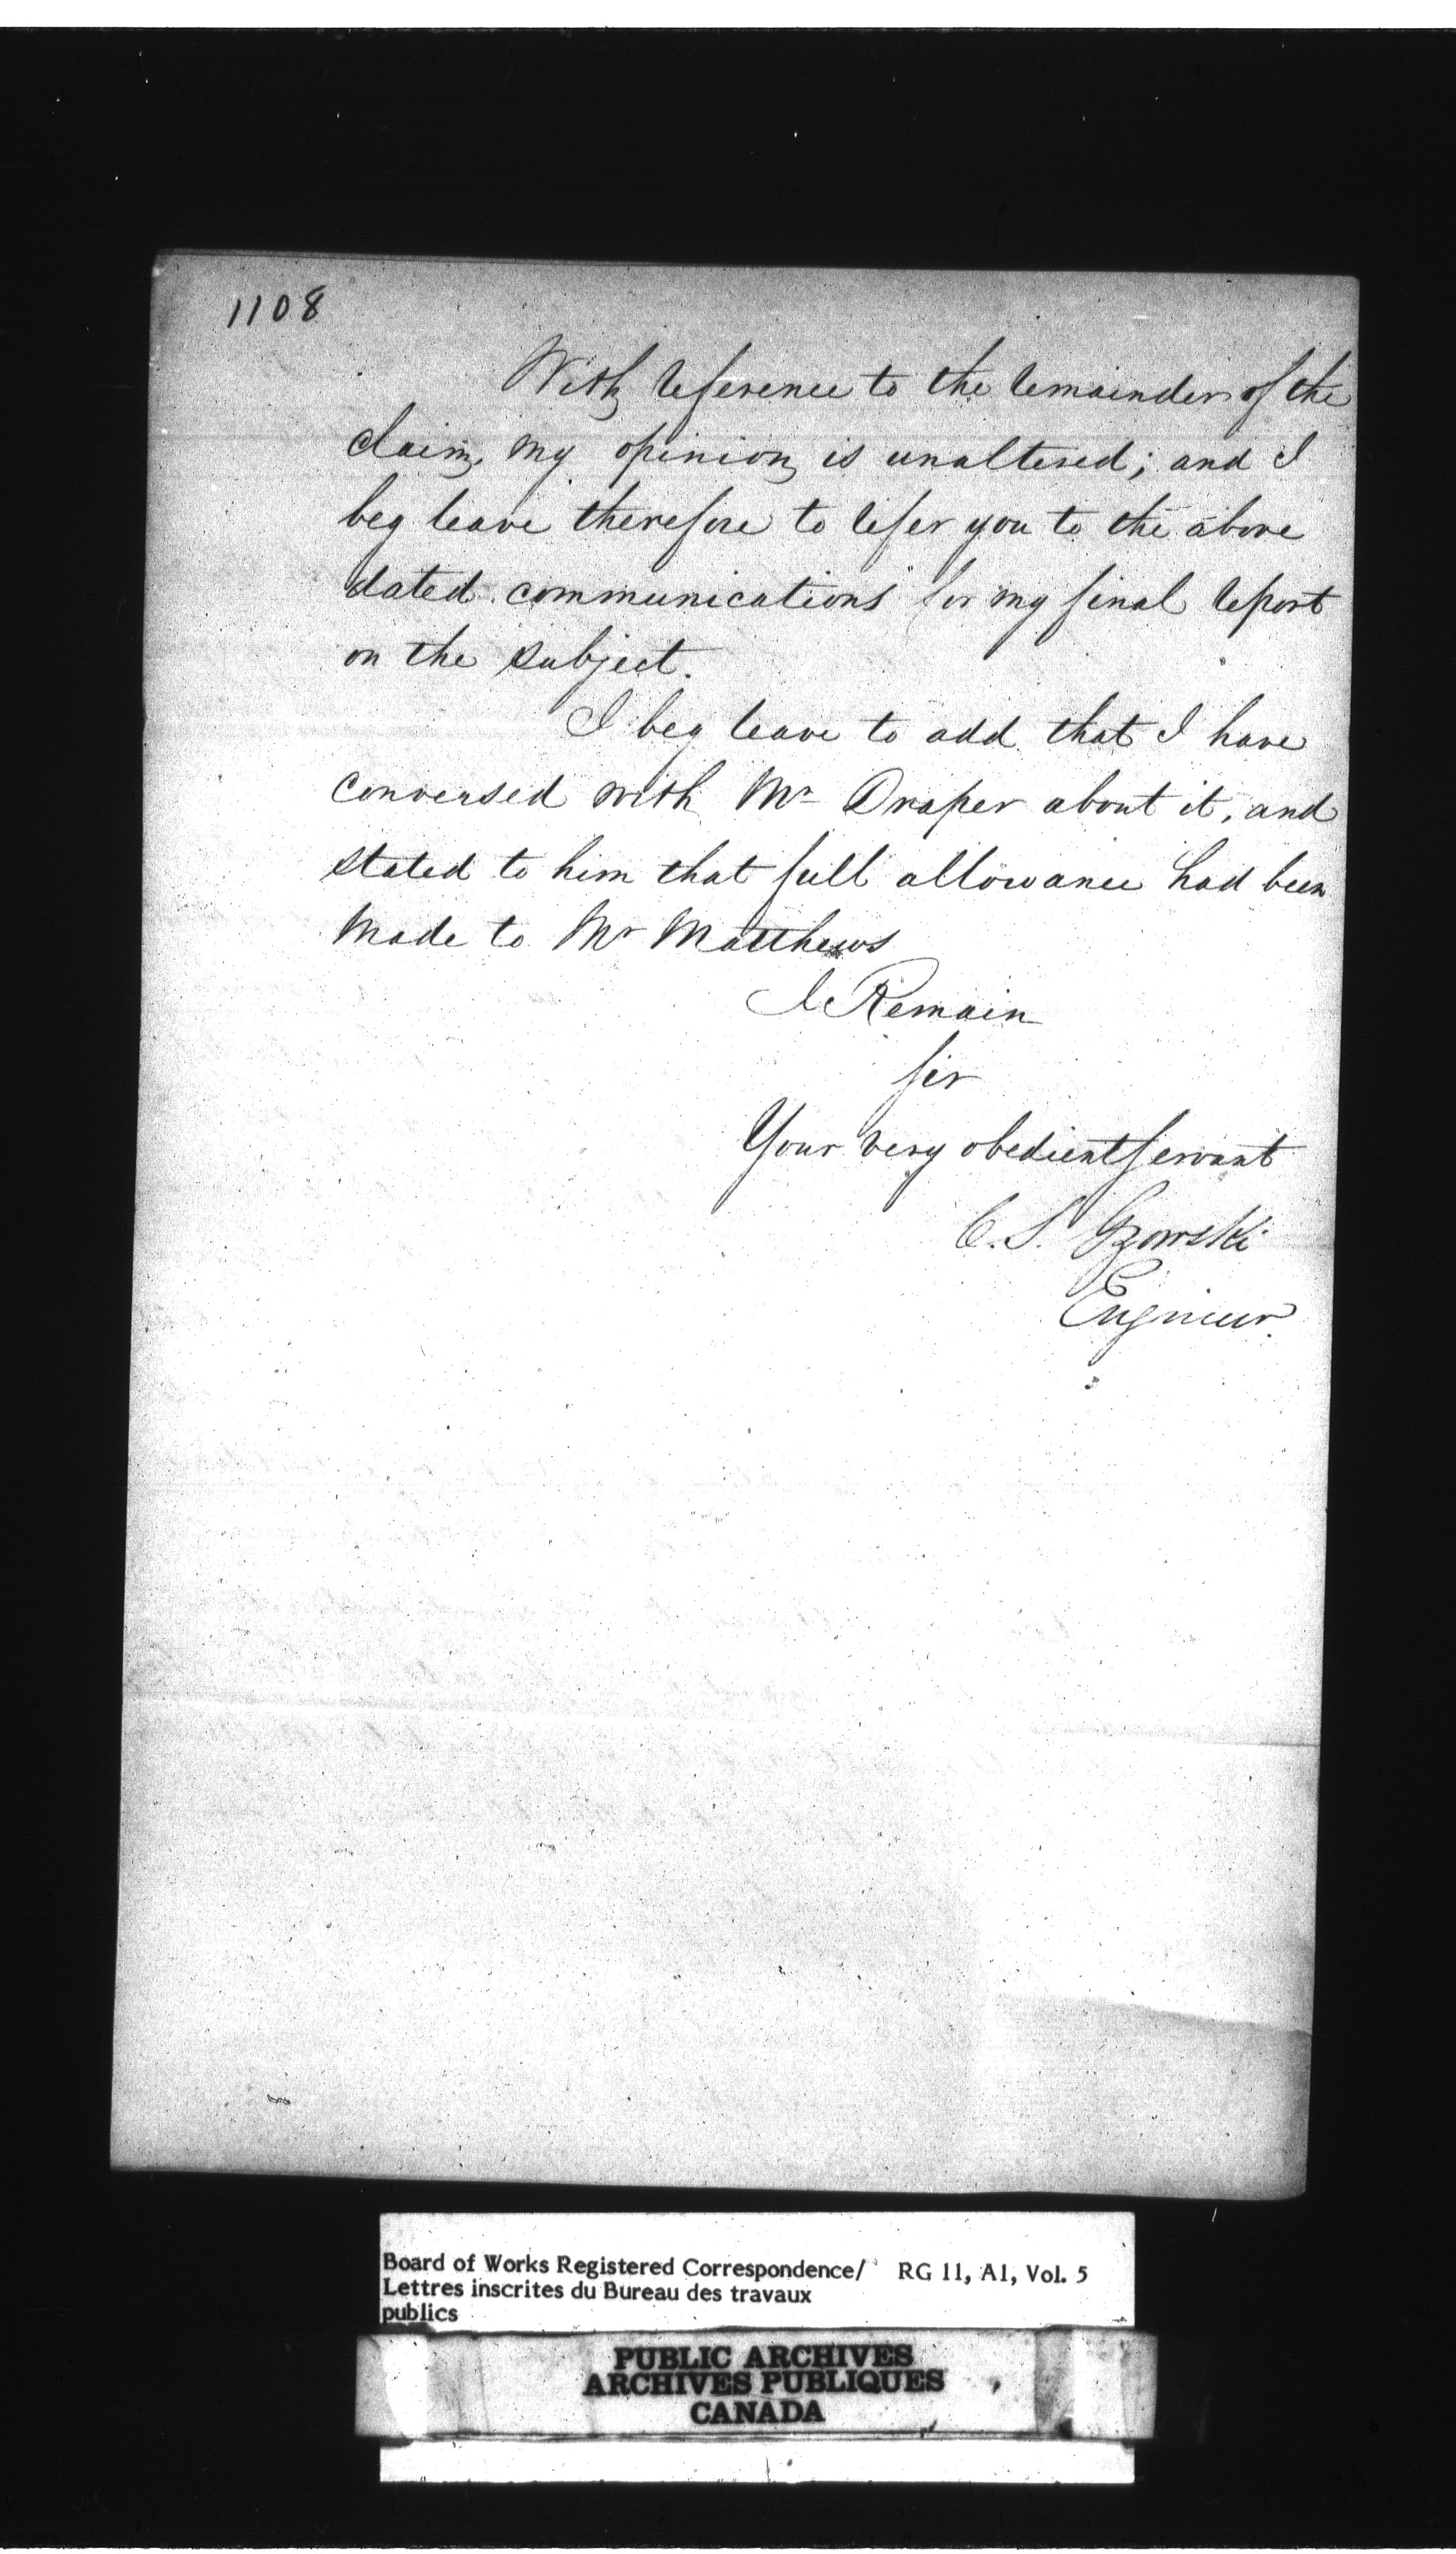 1108
With reference to the remainder of the
claim, my opinion is unaltered; and I
beg leave therefore to refer you to the above
dated communications for my final report
on the subject.
I beg leave to add that I have
conversed with Mr Draper about it, and
stated to him that full allowance had been
made to Mr Matthews
I Remain
Sir
Your very obedient Servant
C. S. Gzowski
Engineer.
Board of Works Registered Correspondence/ RG 11, A1, Vol. 5
Lettres inscrites du Bureau des travaux
publics
PUBLIC ARCHIVES
ARCHIVES PUBLIQUES
CANADA